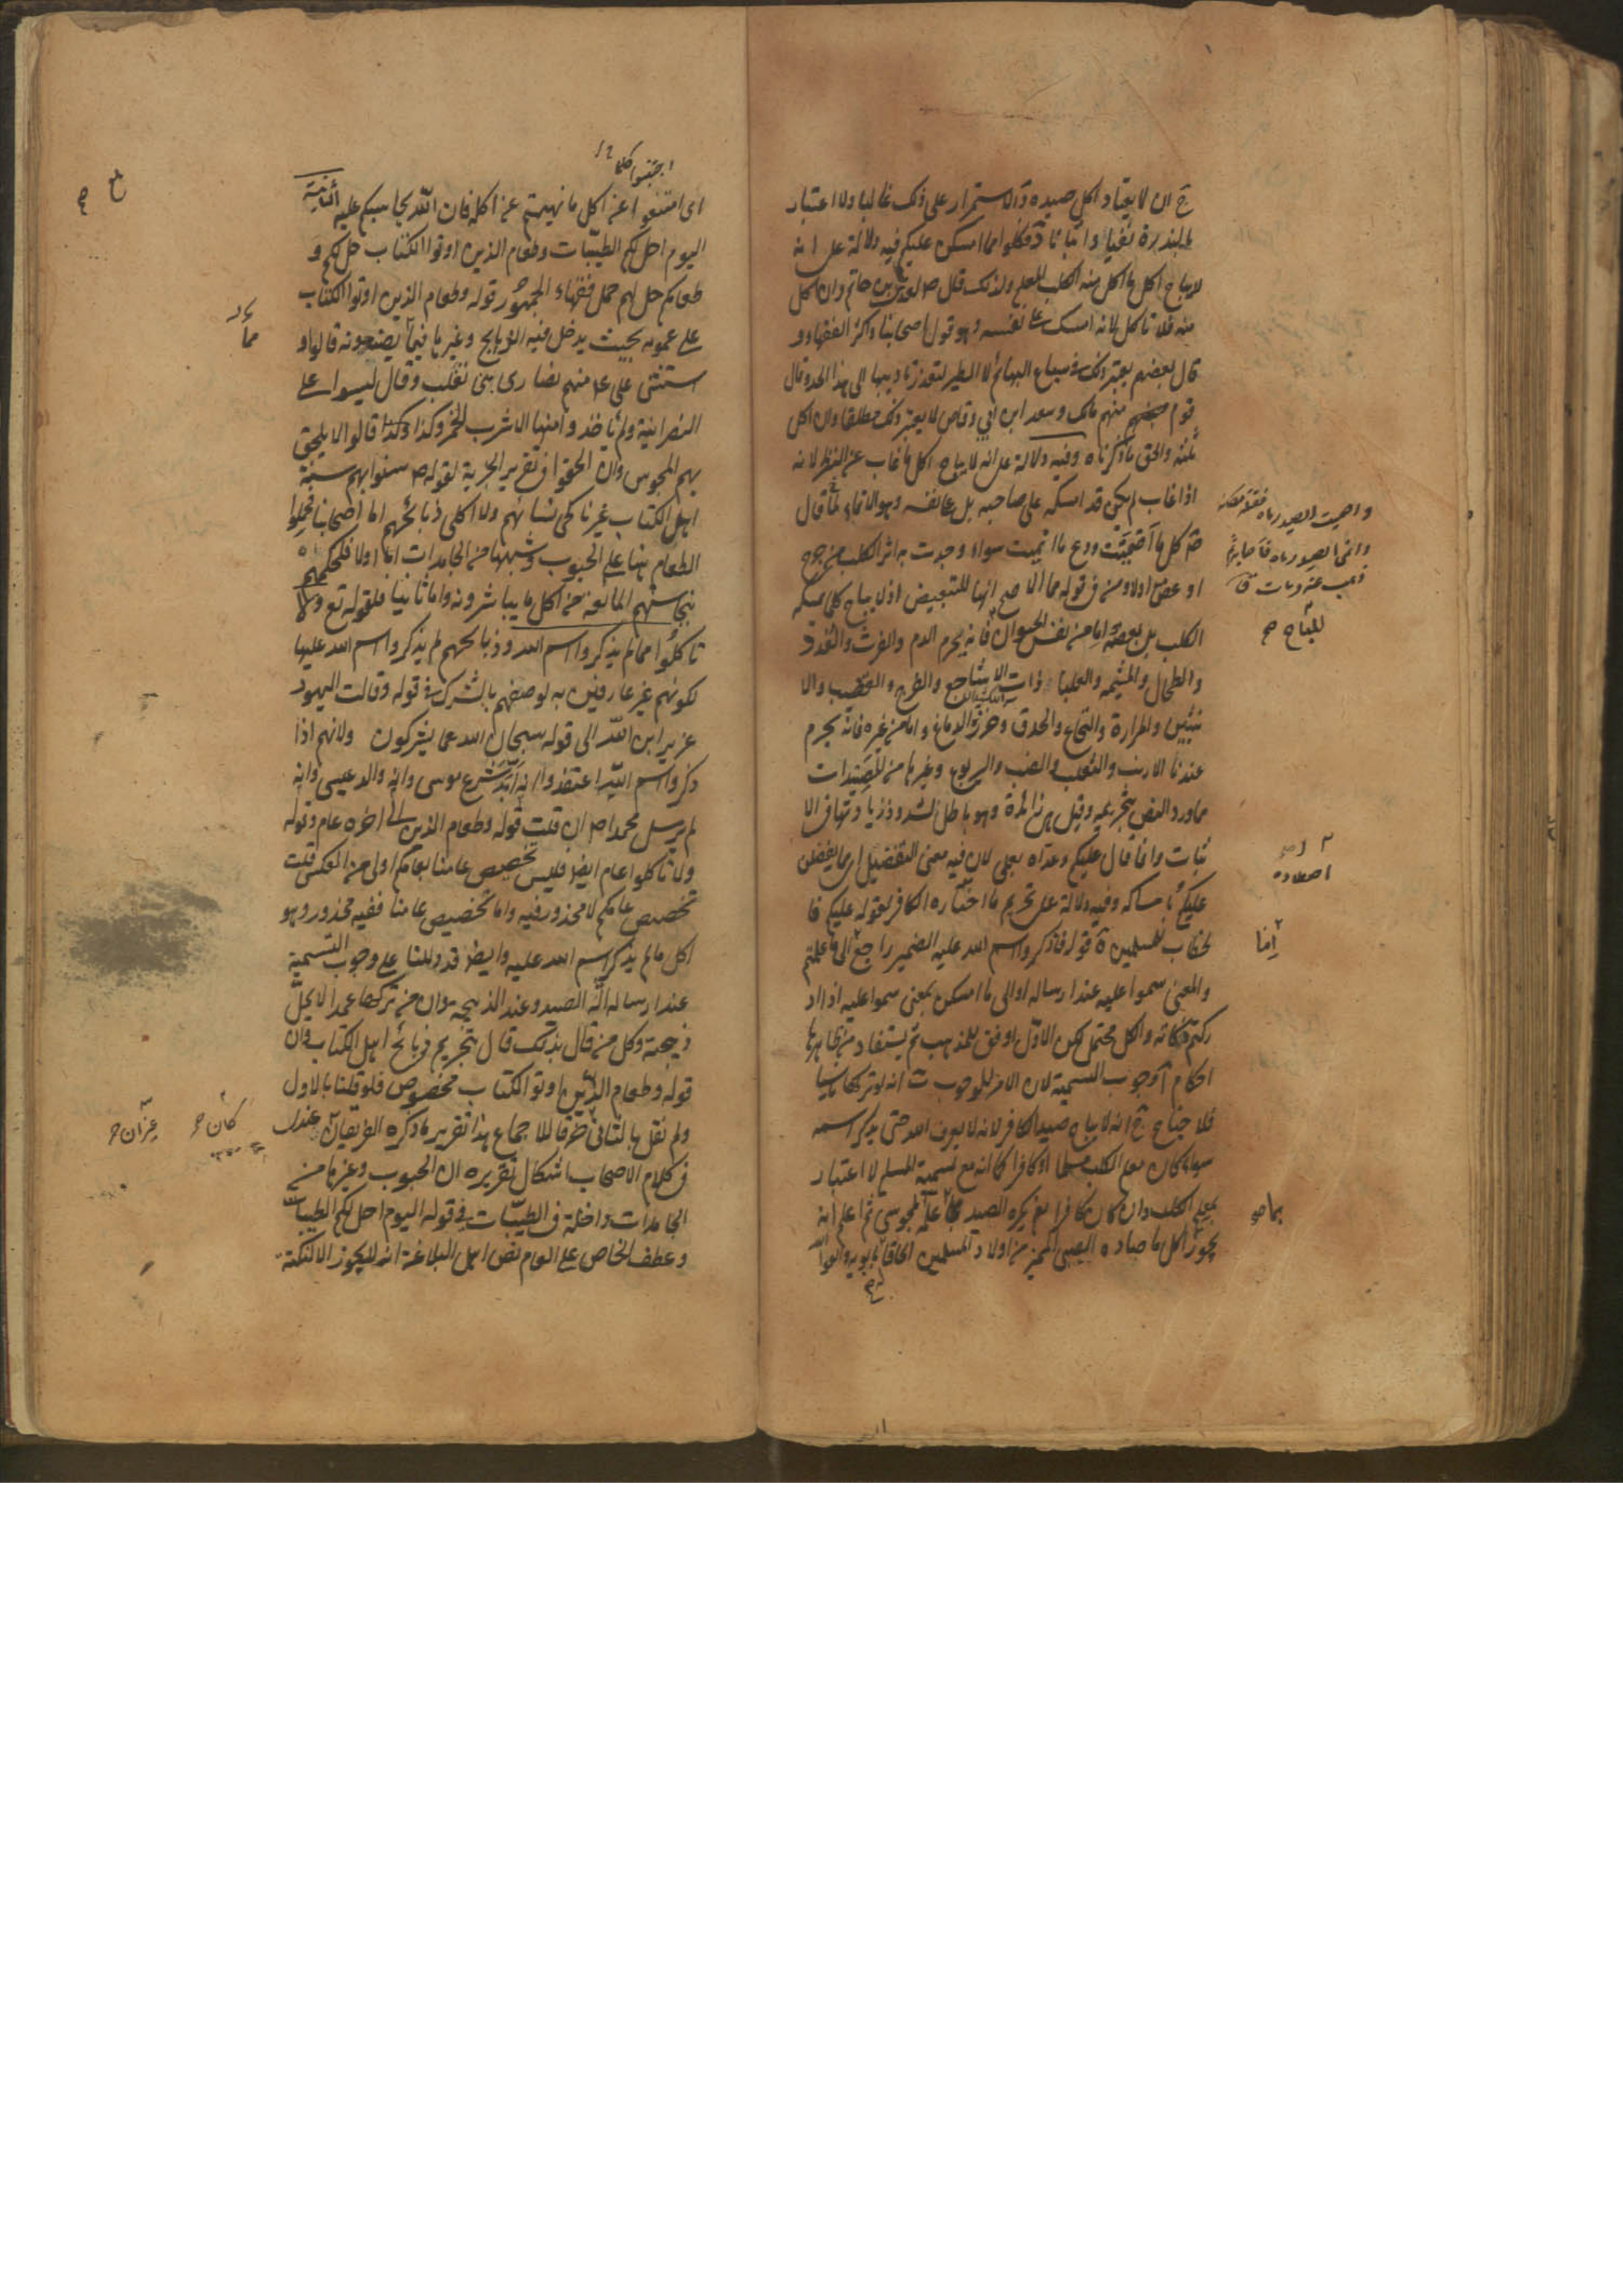 ج ان لا يعتاد اكل صيده د الاستمرار على ذلك غالبا ولا اعتبار
بالندرة نفيا واثباتا فكلوا مما امسكن عليكم فيه دلالة على انه
لا يباح اكل ما اكل منه الكلب المعلم ولذلك قال ص لعدي بن حاتم وان اكل
منه فلا تاكل لانه امسك على نفسه وهو قول اصحابنا واكثر الفقهاء و
قال بعضهم يعتبر ذلك في سباع البهائم لا الطير لتعذر تاديبها الى هذا الحد وقال
قوم منهم مالك وسعد ابن ابي وقاص لا يعتبر ذلك مطلقا وان اكل
ثلثه والحق ما ذكرناه وفيه دلالة على انه لا يباح اكل ما غاب عن النظر لانه
اذا غاب لم يكن قد امسكه على صاحبه بل على نفسه وهو الانماء لما قال
ص كل ما اصميت ودع ما انميت سواء وجدت به اثر الكلب من جرح
او عض اولا ومن في قوله مما الاصح انها للتبعيض اذ لا يباح كلما يمسكه
الكلب بل بعضه اما من نفس الحيوان فانه يحرم الدم والفرث والغدد
والطحال والمشيمه والعلباء وذات الاشاجع والفرج والقضيب والا
نثيين والمرارة والنخاع والحدق وخرزة الدماغ واما من غيره فانه يحرم
عندنا الارنب والثعلب والضب واليربوع وغيرها من المصيدات
مما ورد النص بتحريمه وقيل من زائدة وهو باطل لشذوذ زيادتها في الا
ثبات وانما قال عليكم وعداه بعلى لان فيه معنى التفضيل اى يفضلن
عليكم بامساكه وفيه دلالة على تحريم ما اختاره الكافر لقوله عليكم فا
لخطاب للمسلمين قوله فاذكروا اسم الله عليه الضمير راجع الى ما علمتم
والمعنى سموا عليه عند ارساله او الى ما امسكن بمعنى سموا عليه اذا اد
ركتم ذكاته والكل محتمل لكن الاول اوفق للمذهب ثم يستفاد من ظاهرها
احكام آ وجوب التسمية لان الامر للوجوب ب انه لو تركها ناسيا
فلا جناح ج انه لا يباح صيد الكافر لانه لا يعرف الله حتى يذكر اسمه
سواء كان معلم الكلب مسلما او كافرا كما انه مع تسمية المسلم لا اعتبار
بمعلم الكلب وان كان كافرا نعم يكره الصيد بما علمه المجوسي ثم اعلم انه
يجوز اكل ما صاده الصبي المميز من اولاد المسلمين الحاقا بابويه واتقوا الله
واصميت الصيد رماه فقتله مكانه
وانمى الصيد رماه فاصابه ثم
ذهب عنه ومات ق
المباح صح
اجتنبوا كلما
اى امتنعوا عن اكل ما نهيتم عن اكله فان الله يحاسبكم عليه الثانية
اليوم احل لكم الطيبات وطعام الذين اوتوا الكتاب حل لكم و
طعامكم حل لهم حمل فقهاء الجمهور قوله وطعام الذين اوتوا الكتاب
على عمومه بحيث يدخل فيه الذبايح وغيرها فيما يصنعونه قالوا و
استثنى على ع منهم نصارى بنى تغلب وقال ليسوا على
النصرانية ولم ياخذوا منها الا شرب الخمر وكذا وكذا قالوا لا يلحق
بهم المجوس وان الحقوا في تقرير الجزية لقوله ص سنوا بهم سنة
اهل الكتاب غير ناكحى نسائهم ولا اكلى ذبائحهم اما اصحابنا فحملوا
الطعام هنا على الحبوب وشبهها من الجامدات اما اولا فلحكمهم
بنجاستهم المانعة من اكل ما يباشرونه واما ثانيا فلقوله تع ولا
تاكلوا مما لم يذكروا اسم الله وذبائحهم لم يذكروا اسم الله عليها
لكونهم غير عارفين به لوصفهم بالشرك في قوله وقالت اليهود
عزير ابن الله الى قوله سبحان الله عما يشركون ولانهم اذا
ذكروا اسم الله اعتقدوا انه ابد شرع موسى وانه والد عيسى وانه
لم يرسل محمدا ص ان قلت قوله وطعام الذين الى اخره عام وقوله
ولا تاكلوا عام ايضا فليس تخصيص عامنا بعامكم اولى من العكس قلت
تخصيص عامكم لا محذور فيه واما تخصيص عامنا ففيه محذور وهو
اكل ما لم يذكر اسم الله عليه وايضا قد دللنا على وجوب التسمية
عند ارساله آلة الصيد وعند الذبيحه وان من تركها عمدا لا يحل
ذبيحته وكل من قال بذلك قال بتحريم ذبائح اهل الكتاب وان
قوله وطعام الذين اوتوا الكتاب مخصوص فلو قلنا بالاول
ولم نقل بالثانى خرقا للاجماع هذا تقرير ما ذكره الفريقان عندى
فى كلام الاصحاب اشكال تقريره ان الحبوب وغيرها من
الجامدات داخلة فى الطيبات في قوله اليوم احل لكم الطيبات
وعطف الخاص على العام نص اهل البلاغة انه لا يجوز الا لنكتة